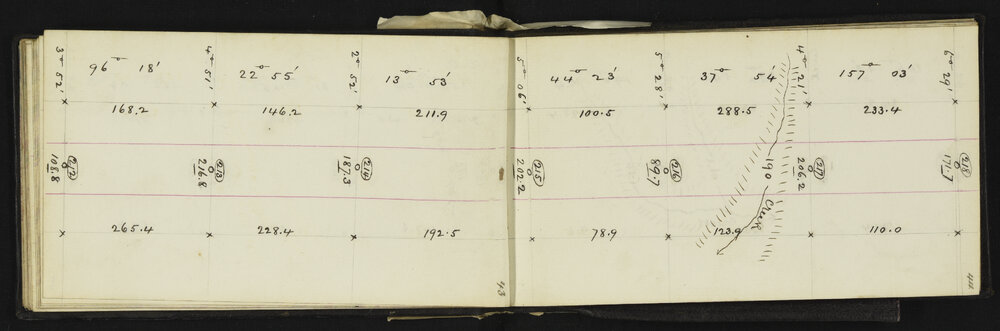 3° 52'
96° 18'
4° 51'
22° 55'
2° 52'
13° 53'
5° 06'
44° 23'
5° 28'
37° 54'
4° 21'
157° 03'
6° 29'
168.2
146.2
211.9
100.5
288.5
233.4
212
108.8
213
216.8
214
187.3
215
202.2
216
89.7
190
Creek
217
206.2
218
171.7
265.4
228.4
192.5
78.9
123.9
110.0
43